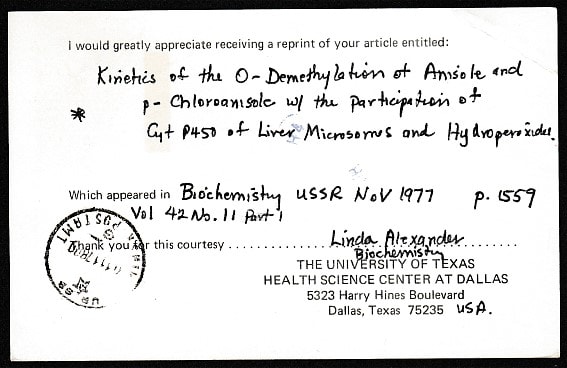 I would greatly appreciate receiving a reprint of your article entitled:
Kinetics of the O-Demethylation of Anisole and
* p-Chloroanisole w/ the participation of
Cyt P450 of Liver Microsomes and Hydroperoxides.
Which appeared in Biochemistry USSR Nov 1977 p. 1559
Vol 42 No. 11 Part 1
Thank you for this courtesy .......... Linda Alexander
Biochemistry
THE UNIVERSITY OF TEXAS
HEALTH SCIENCE CENTER AT DALLAS
5323 Harry Hines Boulevard
Dallas, Texas 75235 USA.